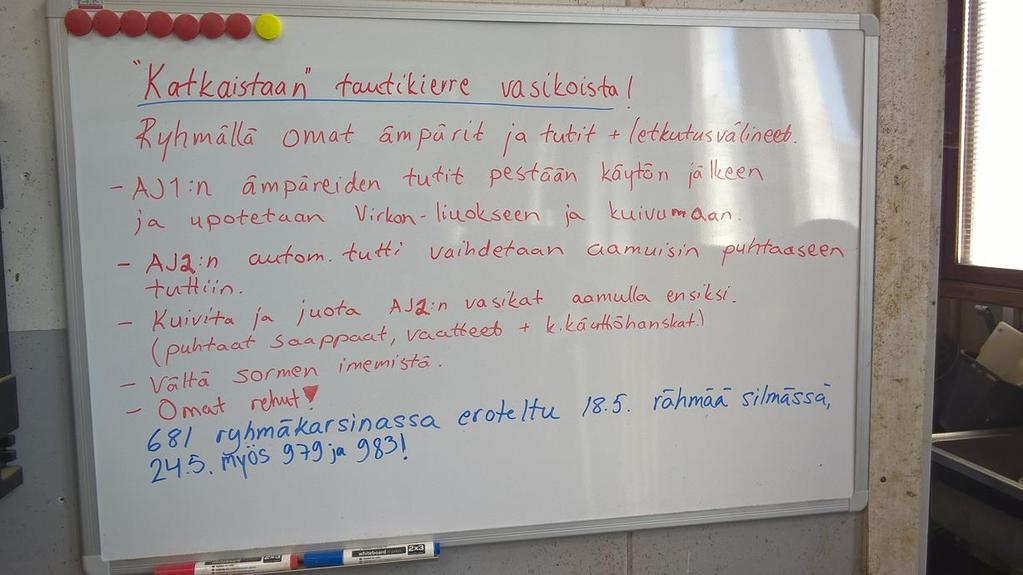 "Katkaistaan" tautikierre vasikoista!
Ryhmällä omat ämpärit ja tutit + letkutusvälineet.
- AJ1:n ämpäreiden tutit pestään käytön jälkeen
ja upotetaan Virkon-liuokseen ja kuivumaan.
- AJ2:n autom. tutti vaihdetaan aamuisin puhtaaseen
tuttiin.
- Kuivita ja juota AJ2:n vasikat aamulla ensiksi.
(puhtaat saappaat, vaatteet + k.käyttöhanskat)
- Vältä sormen imemistä.
- Omat rehut!
681 ryhmäkarsinassa eroteltu 18.5. rähmää silmässä,
24.5. myös 979 ja 983!
whiteboard marker 2x3